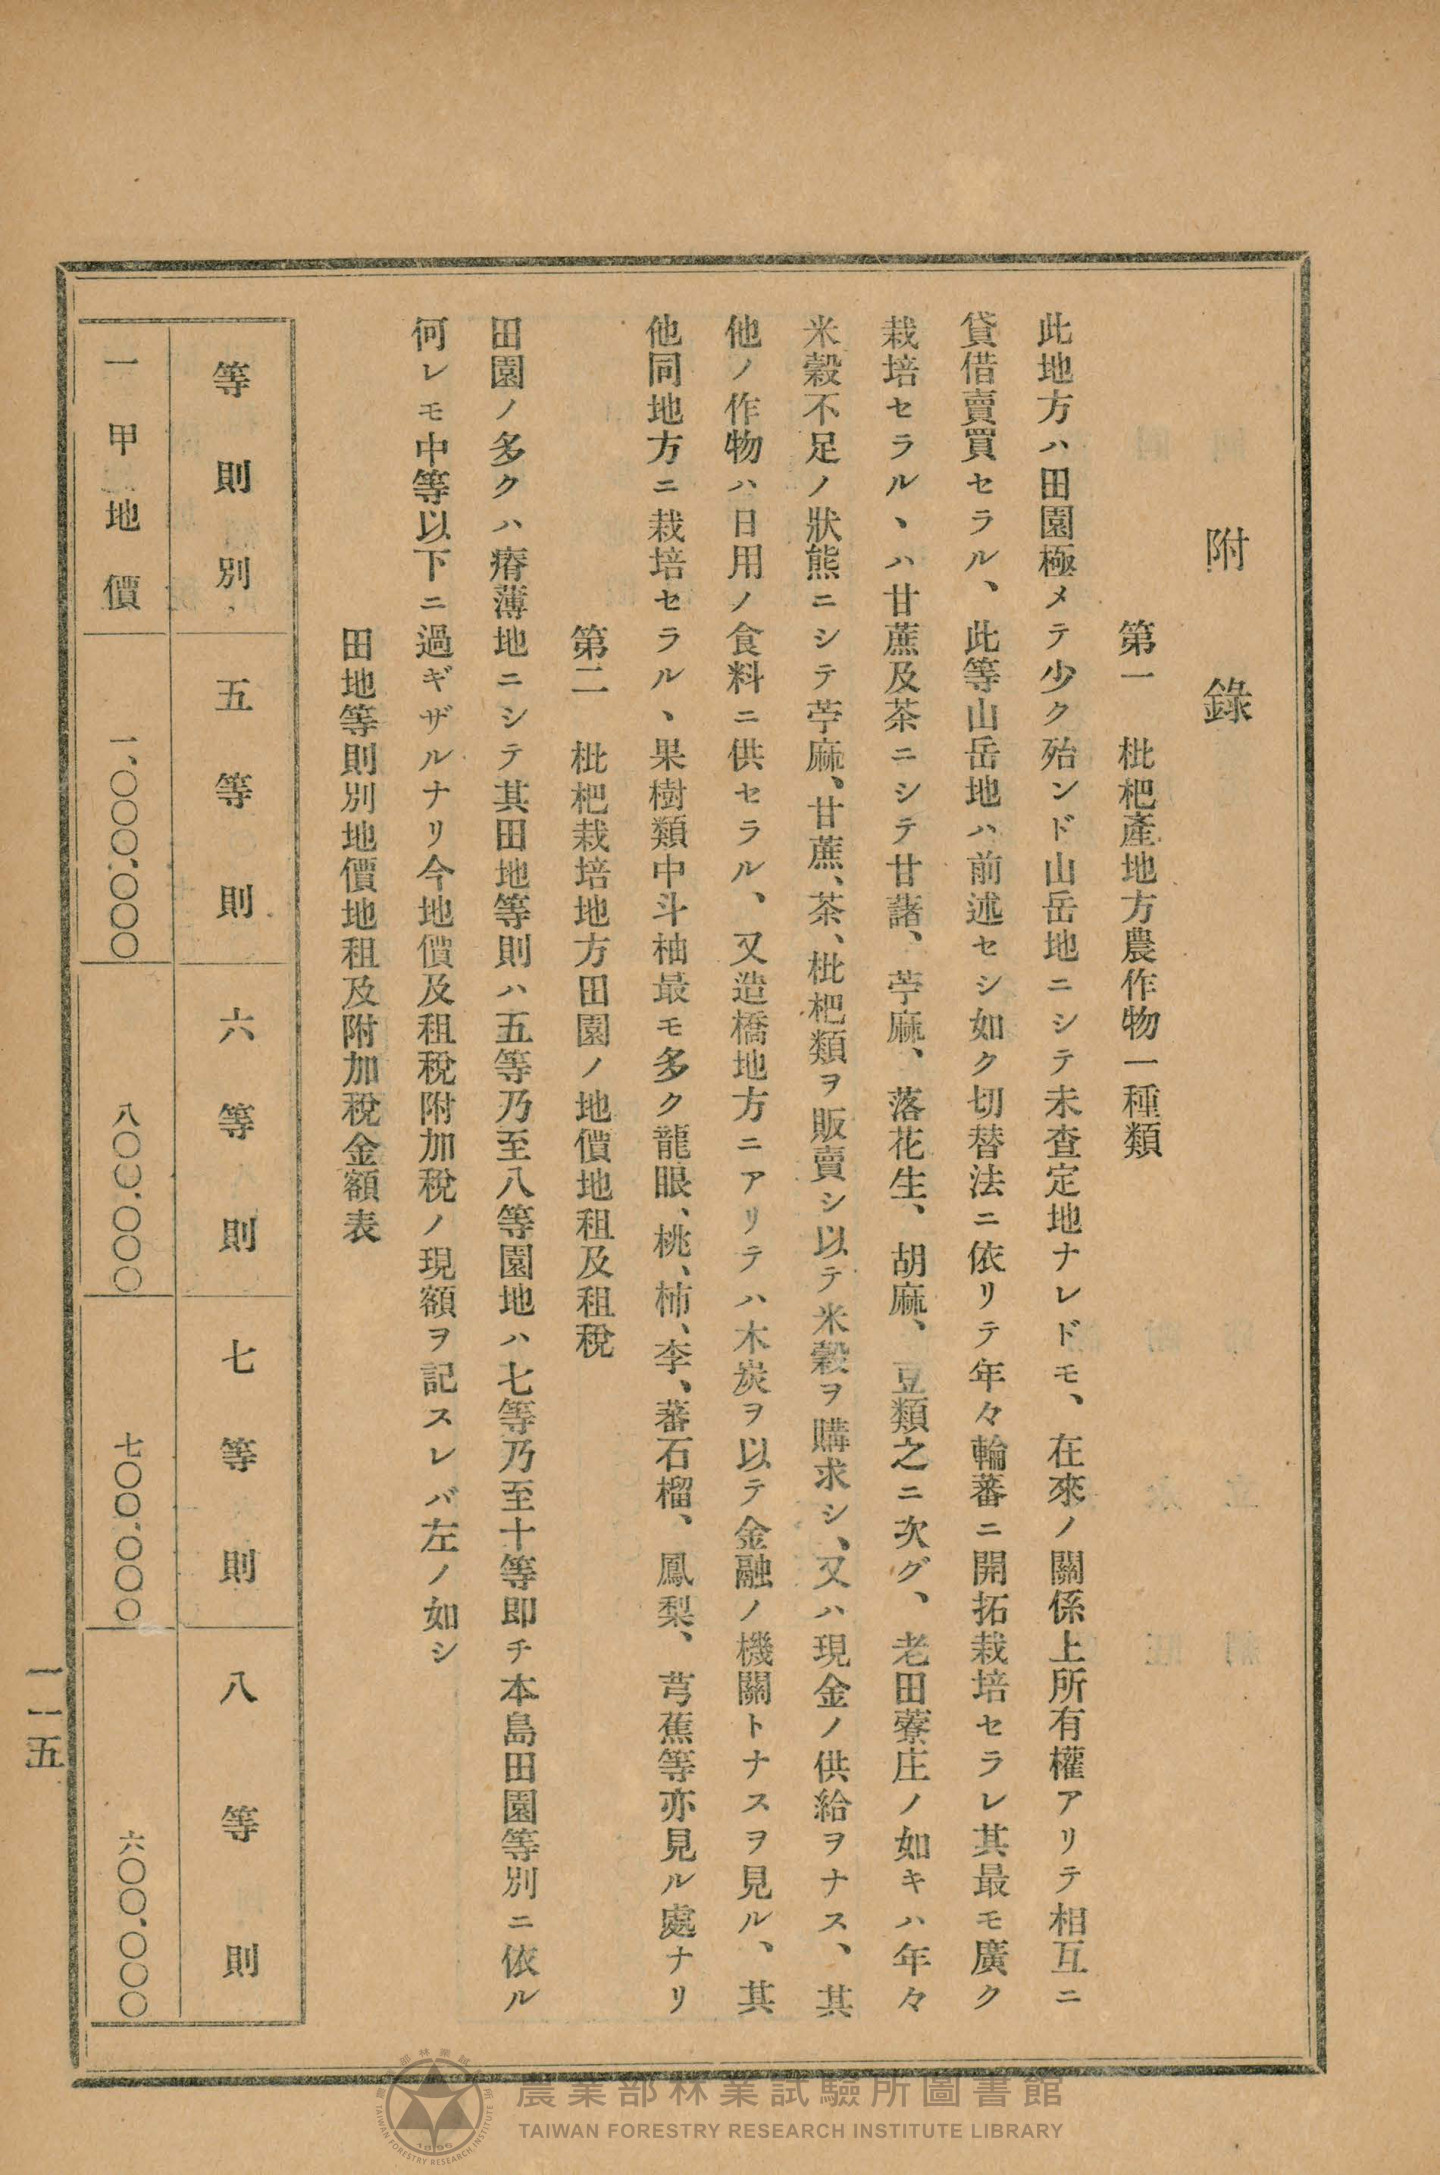 附錄
第一　枇杷產地方農作物一種類
此地方ハ田園極メテ少ク殆ンド山岳地ニシテ未査定地ナレドモ、在來ノ關係上所有權アリテ相互ニ
貸借賣買セラル、此等山岳地ハ前述セシ如ク切替法ニ依リテ年々輪蕃ニ開拓栽培セラレ其最モ廣ク
栽培セラル、ハ甘蔗及茶ニシテ甘藷、苧麻、落花生、胡麻、豆類之ニ次グ、老田藔庄ノ如キハ年々
米穀不足ノ狀熊ニシテ苧麻、甘蔗、茶、枇杷類ヲ販賣シ以テ米穀ヲ購求シ、又ハ現金ノ供給ヲナス、其
他ノ作物ハ日用ノ食料ニ供セラル、又造橋地方ニアリテハ木炭ヲ以テ金融ノ機關トナスヲ見ル、其
他同地方ニ栽培セラル、果樹類中斗柚最モ多ク龍眼、桃、柿、李、蕃石榴、鳳梨、芎蕉等亦見ル處ナリ
第二　枇杷栽培地方田園ノ地價地租及租稅
田園ノ多クハ瘠薄地ニシテ其田地等則ハ五等乃至八等園地ハ七等乃至十等即チ本島田園等別ニ依ル
何レモ中等以下ニ過ギザルナリ今地價及租稅附加稅ノ現額ヲ記スレバ左ノ如シ
田地等則別地價地租及附加稅金額表
等則別　五等則　六等則　七等則　八等則
一甲地價　一、〇〇〇.〇〇〇　八〇〇.〇〇〇　七〇〇.〇〇〇　六〇〇.〇〇〇
一一五
農業部林業試驗所圖書館
TAIWAN FORESTRY RESEARCH INSTITUTE LIBRARY